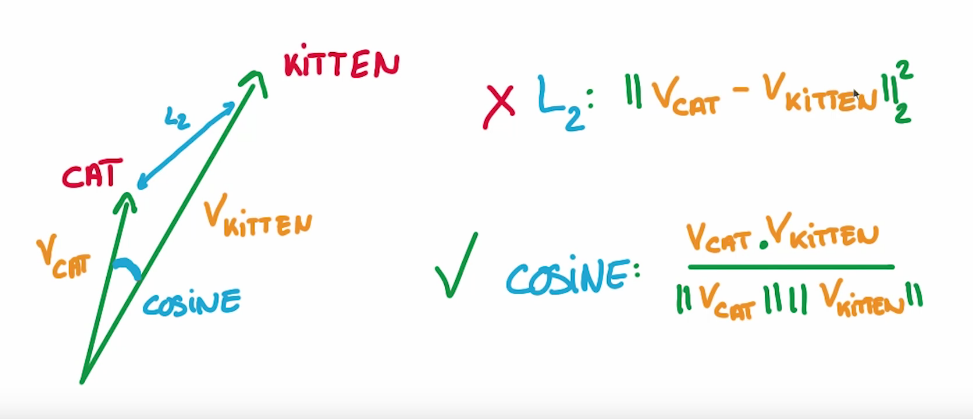 KiTTEN
L₂
CAT
V_KiTTEN
V_CAT
COSiNE
X L₂: || V_CAT - V_KiTTEN ||₂²
✓ COSiNE: V_CAT . V_KiTTEN
|| V_CAT || || V_KiTTEN ||